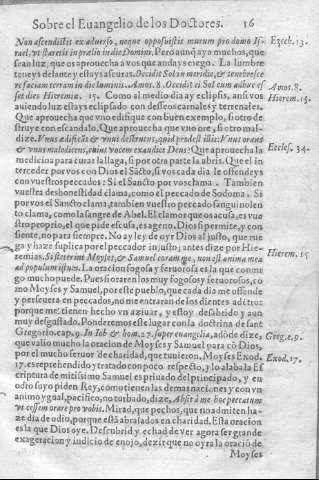 Sobre el Euangelio de los Doctores. 16
Non ascendistis ex aduerso, neque opposuistis murum pro domo Is-
rael, vt staretis in prælio in die Domini. Pero aunq̃ ayo muchos, que Ezech. 13.
sean luz, que os aprouecha a vos que andays ciego. La lumbre
teneys delante y estays ascuras. Occidit Sol in meridie, & tenebresce-
re faciam terram in die luminis. Amos. 8. Occidit ei Sol cum adhuc es- Amos. 8.
set dies Hieremiæ. 15. Como al medio dia ay eclipsi, ansi vos Hierem. 15.
auiendo luz estays eclipsado con desseos carnales y terrenales.
Que aprouecha que vno edifique con buen exemplo, si otro de
struye con escandalo. Que aprouecha que vno ore, si otro mal-
dize. Vnus ædificãs & vnus destruens, quid prodest illis? Vnus orãs
& vnus maledicens, cuius vocem exaudiet Deus? Que aprouecha la Eccles. 34.
medicina para curar la llaga, si por otra parte la abris. Que el in
terceder por vos con Dios el Sãcto, si vos cada dia le offendeys
con vuestros peccados: Si el Sancto por vos chama. Tambien
vuestra deshonestidad clama, como el peccado de Sodoma. Si
por vos el Sancto clama, tambien vuestro peccado sanguinolen
to clama, como la sangre de Abel. El clamor que os acusa, es vue
stro proprio, el que pide escusa, es ageno. Dios si permite, y con
siente, no para siempre. No ay ley de oyr Dios al justo, que rue
ga y haze suplica por el peccador injusto, antes dize por Hie-
remias. Si steterint Moyses, & Samuel coram me, non est anima mea Hierem. 15
ad populum istum. La oracion fogosa y feruorosa es la que conmi
go mucho puede. Pues si oraren los muy fogosos y feruorosos, co
mo Moyses y Samuel, por este pueblo, que cada dia me offende
y perseuera en peccados, no me entraran de los dientes adẽtro:
porque me tienen hecho vn aziuar, y estoy desabrido y aun
muy desgustado. Ponderemos este lugar con la doctrina de sant
Gregorio. cap. 9. In Iob & hom. 27. super euangelia, adõde dize, Greg. c. 9.
que valio mucho la oracion de Moyses y Samuel para cõ Dios,
por el mucho feruor de charidad, que tuuieron. Moyses Exod. Exod. 17.
17. es reprehendido y tratado con poco respecto, y lo alabaua la Es
criptura de mitissimo Samuel es priuado del principado, y en
odio suyo piden Rey, como tienen las demas naciones y con vn
animo ygual, pacifico, no turbado, dize, Absit à me hoc peccatum
vt cessem orare pro vobis. Mirad, que pechos, que no admiten ha-
ze dia de odio, porque està abrasados en charidad. Esta oracion
es la que Dios oye. Descubrid y echad de ver agora ser grande
exageracion y indicio de enojo, dezir que no oyra la oraciõ de
Moyses